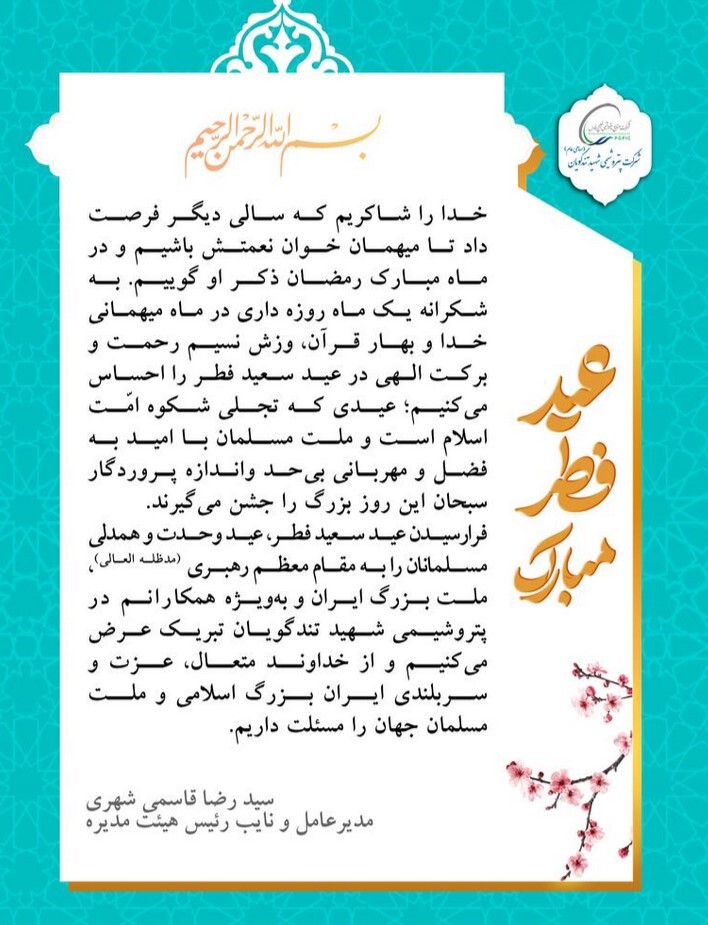 بسم الله الرحمن الرحیم
PGPIC
(سهامی عام)
شرکت پتروشیمی شهید تندگویان
خدا را شاکریم که سالی دیگر فرصت
داد تا میهمان خوان نعمتش باشیم و در
ماه مبارک رمضان ذکر او گوییم. به
شکرانه یک ماه روزه داری در ماه میهمانی
خدا و بهار قرآن، وزش نسیم رحمت و
برکت الهی در عید سعید فطر را احساس
می‌کنیم؛ عیدی که تجلی شکوه امّت
اسلام است و ملت مسلمان با امید به
فضل و مهربانی بی‌حد واندازه پروردگار
سبحان این روز بزرگ را جشن می‌گیرند.
فرارسیدن عید سعید فطر، عید وحدت و همدلی
مسلمانان را به مقام معظم رهبری (مدظله العالی)،
ملت بزرگ ایران و به‌ویژه همکارانم در
پتروشیمی شهید تندگویان تبریک عرض
می‌کنیم و از خداوند متعال، عزت و
سربلندی ایران بزرگ اسلامی و ملت
مسلمان جهان را مسئلت داریم.
عید
فطر
مبارک
سید رضا قاسمی شهری
مدیرعامل و نایب رئیس هیئت مدیره